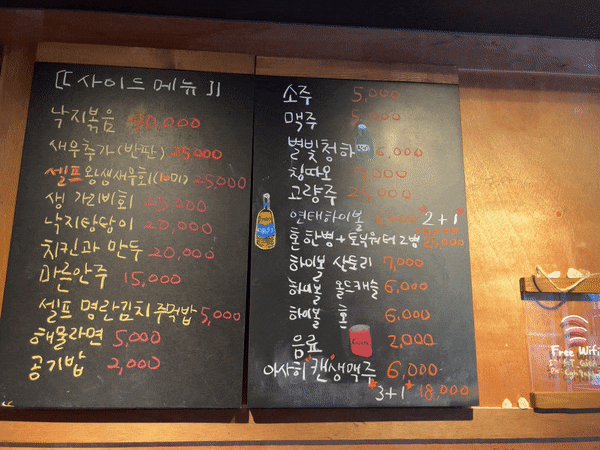 [[ 사이드 메뉴 ]]
낙지볶음 30,000
새우추가(반판) 25,000
셀프 왕생새우회(10미) 25,000
생 가리비회 25,000
낙지탕탕이 20,000
치킨과 만두 20,000
마른안주 15,000
셀프 명란김치주먹밥 5,000
해물라면 5,000
공기밥 2,000
소주 5,000
맥주 5,000
별빛청하 6,000
칭따오
고량주
연태하이볼 2+1
혼한병+토닉워터2병 25,000
하이볼 산토리 7,000
하이볼 올드캐슬 6,000
하이볼 혼 6,000
음료 2,000
아사히 캔생맥주 6,000
3+1 18,000
Free Wifi